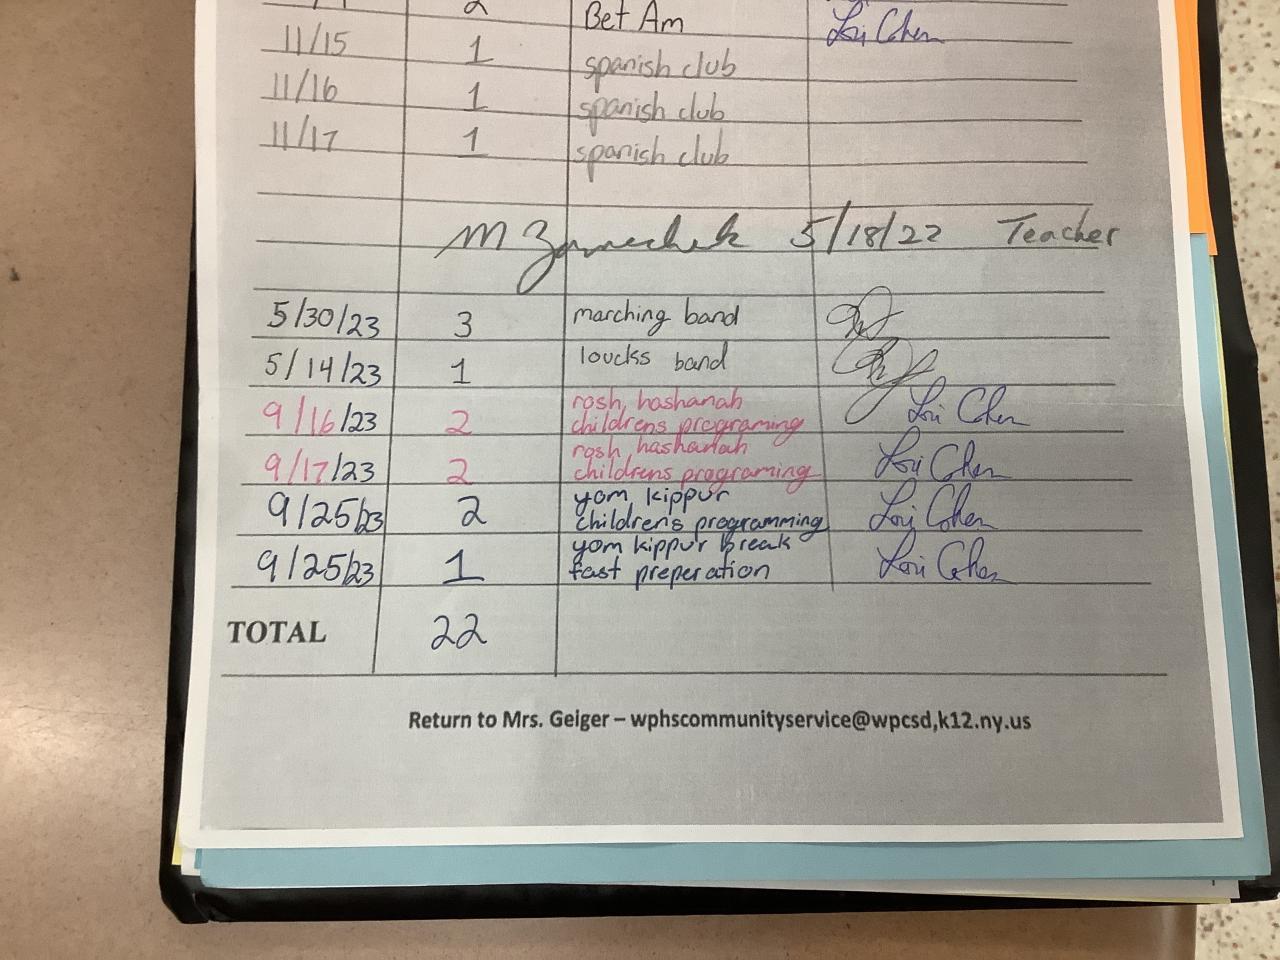 2 Bet Am Lori Cohen
11/15 1 spanish club
11/16 1 spanish club
11/17 1 spanish club
M 5/18/22 Teacher
5/30/23 3 marching band
5/14/23 1 loucks band
9/16/23 2 rosh hashanah
childrens programing Lori Cohen
9/17/23 2 rosh hashanah
childrens programing Lori Cohen
9/25/23 2 yom kippur
childrens programming Lori Cohen
9/25/23 1 yom kippur break
fast preperation Lori Cohen
TOTAL 22
Return to Mrs. Geiger – wphscommunityservice@wpcsd,k12.ny.us